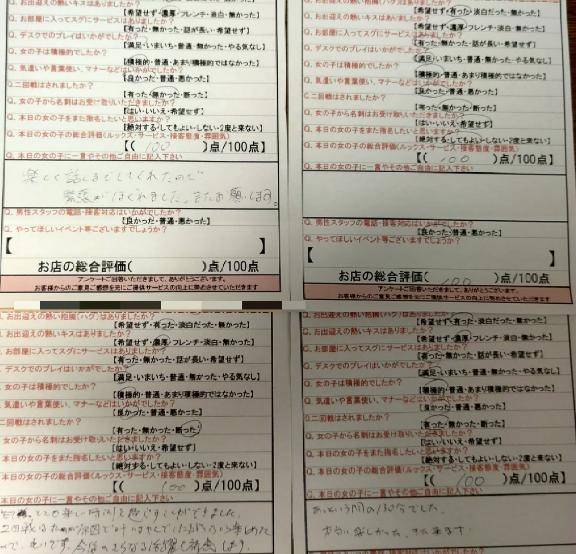 Q. お出迎えの熱いキスはありましたか?
【希望せず・濃厚・フレンチ・淡白・無かった】
Q. お部屋に入ってスグにサービスはありましたか?
【有った・無かった・話が長い・希望せず】
Q. デスクでのプレイはいかがでしたか?
【満足・いまいち・普通・無かった・やる気なし】
Q. 女の子は積極的でしたか?
【積極的・普通・あまり積極的ではなかった】
Q. 気遣いや言葉使い、マナーなどはいかがでしたか?
【良かった・普通・悪かった】
Q. 二回戦はされましたか?
【有った・無かった・断った】
Q. 女の子から名刺はお受け取りいただきましたか?
【はい・いいえ・希望せず】
Q. 本日の女の子をまた指名したいと思いますか?
【絶対する・してもよい・しない・2度と来ない】
Q. 本日の女の子の総合評価(ルックス・サービス・接客態度・雰囲気)
【( 100 )点/100点】
Q. 本日の女の子に一言やその他ご自由に記入下さい
楽しく話しをしてくれたので
緊張がほぐれました。またお願いします。
Q. 男性スタッフの電話・接客対応はいかがでしたか?
【良かった・普通・悪かった】
Q. やってほしいイベント等ございますでしょうか?
【 】
お店の総合評価( )点/100点
アンケートご回答いただきまして、ありがとうございます。
お客様からのご意見ご感想を元にご提供サービスの向上に努めさせていただきます
【希望せず・有った・淡白だった・無かった】
Q. お出迎えの熱いキスはありましたか?
【希望せず・濃厚・フレンチ・淡白・無かった】
Q. お部屋に入ってスグにサービスはありましたか?
【有った・無かった・話が長い・希望せず】
Q. デスクでのプレイはいかがでしたか?
【満足・いまいち・普通・無かった・やる気なし】
Q. 女の子は積極的でしたか?
【積極的・普通・あまり積極的ではなかった】
Q. 気遣いや言葉使い、マナーなどはいかがでしたか?
【良かった・普通・悪かった】
Q. 二回戦はされましたか?
【有った・無かった・断った】
Q. 女の子から名刺はお受け取りいただきましたか?
【はい・いいえ・希望せず】
Q. 本日の女の子をまた指名したいと思いますか?
【絶対する・してもよい・しない・2度と来ない】
Q. 本日の女の子の総合評価(ルックス・サービス・接客態度・雰囲気)
【( 100 )点/100点】
Q. 本日の女の子に一言やその他ご自由に記入下さい
Q. 男性スタッフの電話・接客対応はいかがでしたか?
【良かった・普通・悪かった】
Q. やってほしいイベント等ございますでしょうか?
【 】
お店の総合評価( 100 )点/100点
アンケートご回答いただきまして、ありがとうございます。
お客様からのご意見ご感想を元にご提供サービスの向上に努めさせていただきます
Q. お出迎えの熱い抱擁(ハグ)はありましたか?
【希望せず・有った・淡白だった・無かった】
Q. お出迎えの熱いキスはありましたか?
【希望せず・濃厚・フレンチ・淡白・無かった】
Q. お部屋に入ってスグにサービスはありましたか?
【有った・無かった・話が長い・希望せず】
Q. デスクでのプレイはいかがでしたか?
【満足・いまいち・普通・無かった・やる気なし】
Q. 女の子は積極的でしたか?
【積極的・普通・あまり積極的ではなかった】
Q. 気遣いや言葉使い、マナーなどはいかがでしたか?
【良かった・普通・悪かった】
二回戦はされましたか?
【有った・無かった・断った】
女の子から名刺はお受け取りいただきましたか?
【はい・いいえ・希望せず】
本日の女の子をまた指名したいと思いますか?
【絶対する・してもよい・しない・2度と来ない】
本日の女の子の総合評価(ルックス・サービス・接客態度・雰囲気)
【( 100 )点/100点】
本日の女の子に一言やその他ご自由に記入下さい
Q. お出迎えの熱い抱擁(ハグ)はありましたか?
【希望せず・有った・淡白だった・無かった】
Q. お出迎えの熱いキスはありましたか?
【希望せず・濃厚・フレンチ・淡白・無かった】
Q. お部屋に入ってスグにサービスはありましたか?
【有った・無かった・話が長い・希望せず】
Q. デスクでのプレイはいかがでしたか?
【満足・いまいち・普通・無かった・やる気なし】
Q. 女の子は積極的でしたか?
【積極的・普通・あまり積極的ではなかった】
Q. 気遣いや言葉使い、マナーなどはいかがでしたか?
【良かった・普通・悪かった】
Q. 二回戦はされましたか?
【有った・無かった・断った】
Q. 女の子から名刺はお受け取りいただきましたか?
【はい・いいえ・希望せず】
Q. 本日の女の子をまた指名したいと思いますか?
【絶対する・してもよい・しない・2度と来ない】
Q. 本日の女の子の総合評価(ルックス・サービス・接客態度・雰囲気)
【( 100 )点/100点】
Q. 本日の女の子に一言やその他ご自由に記入下さい
あっという間の130分でした。
本当に楽しかった。また来ます。